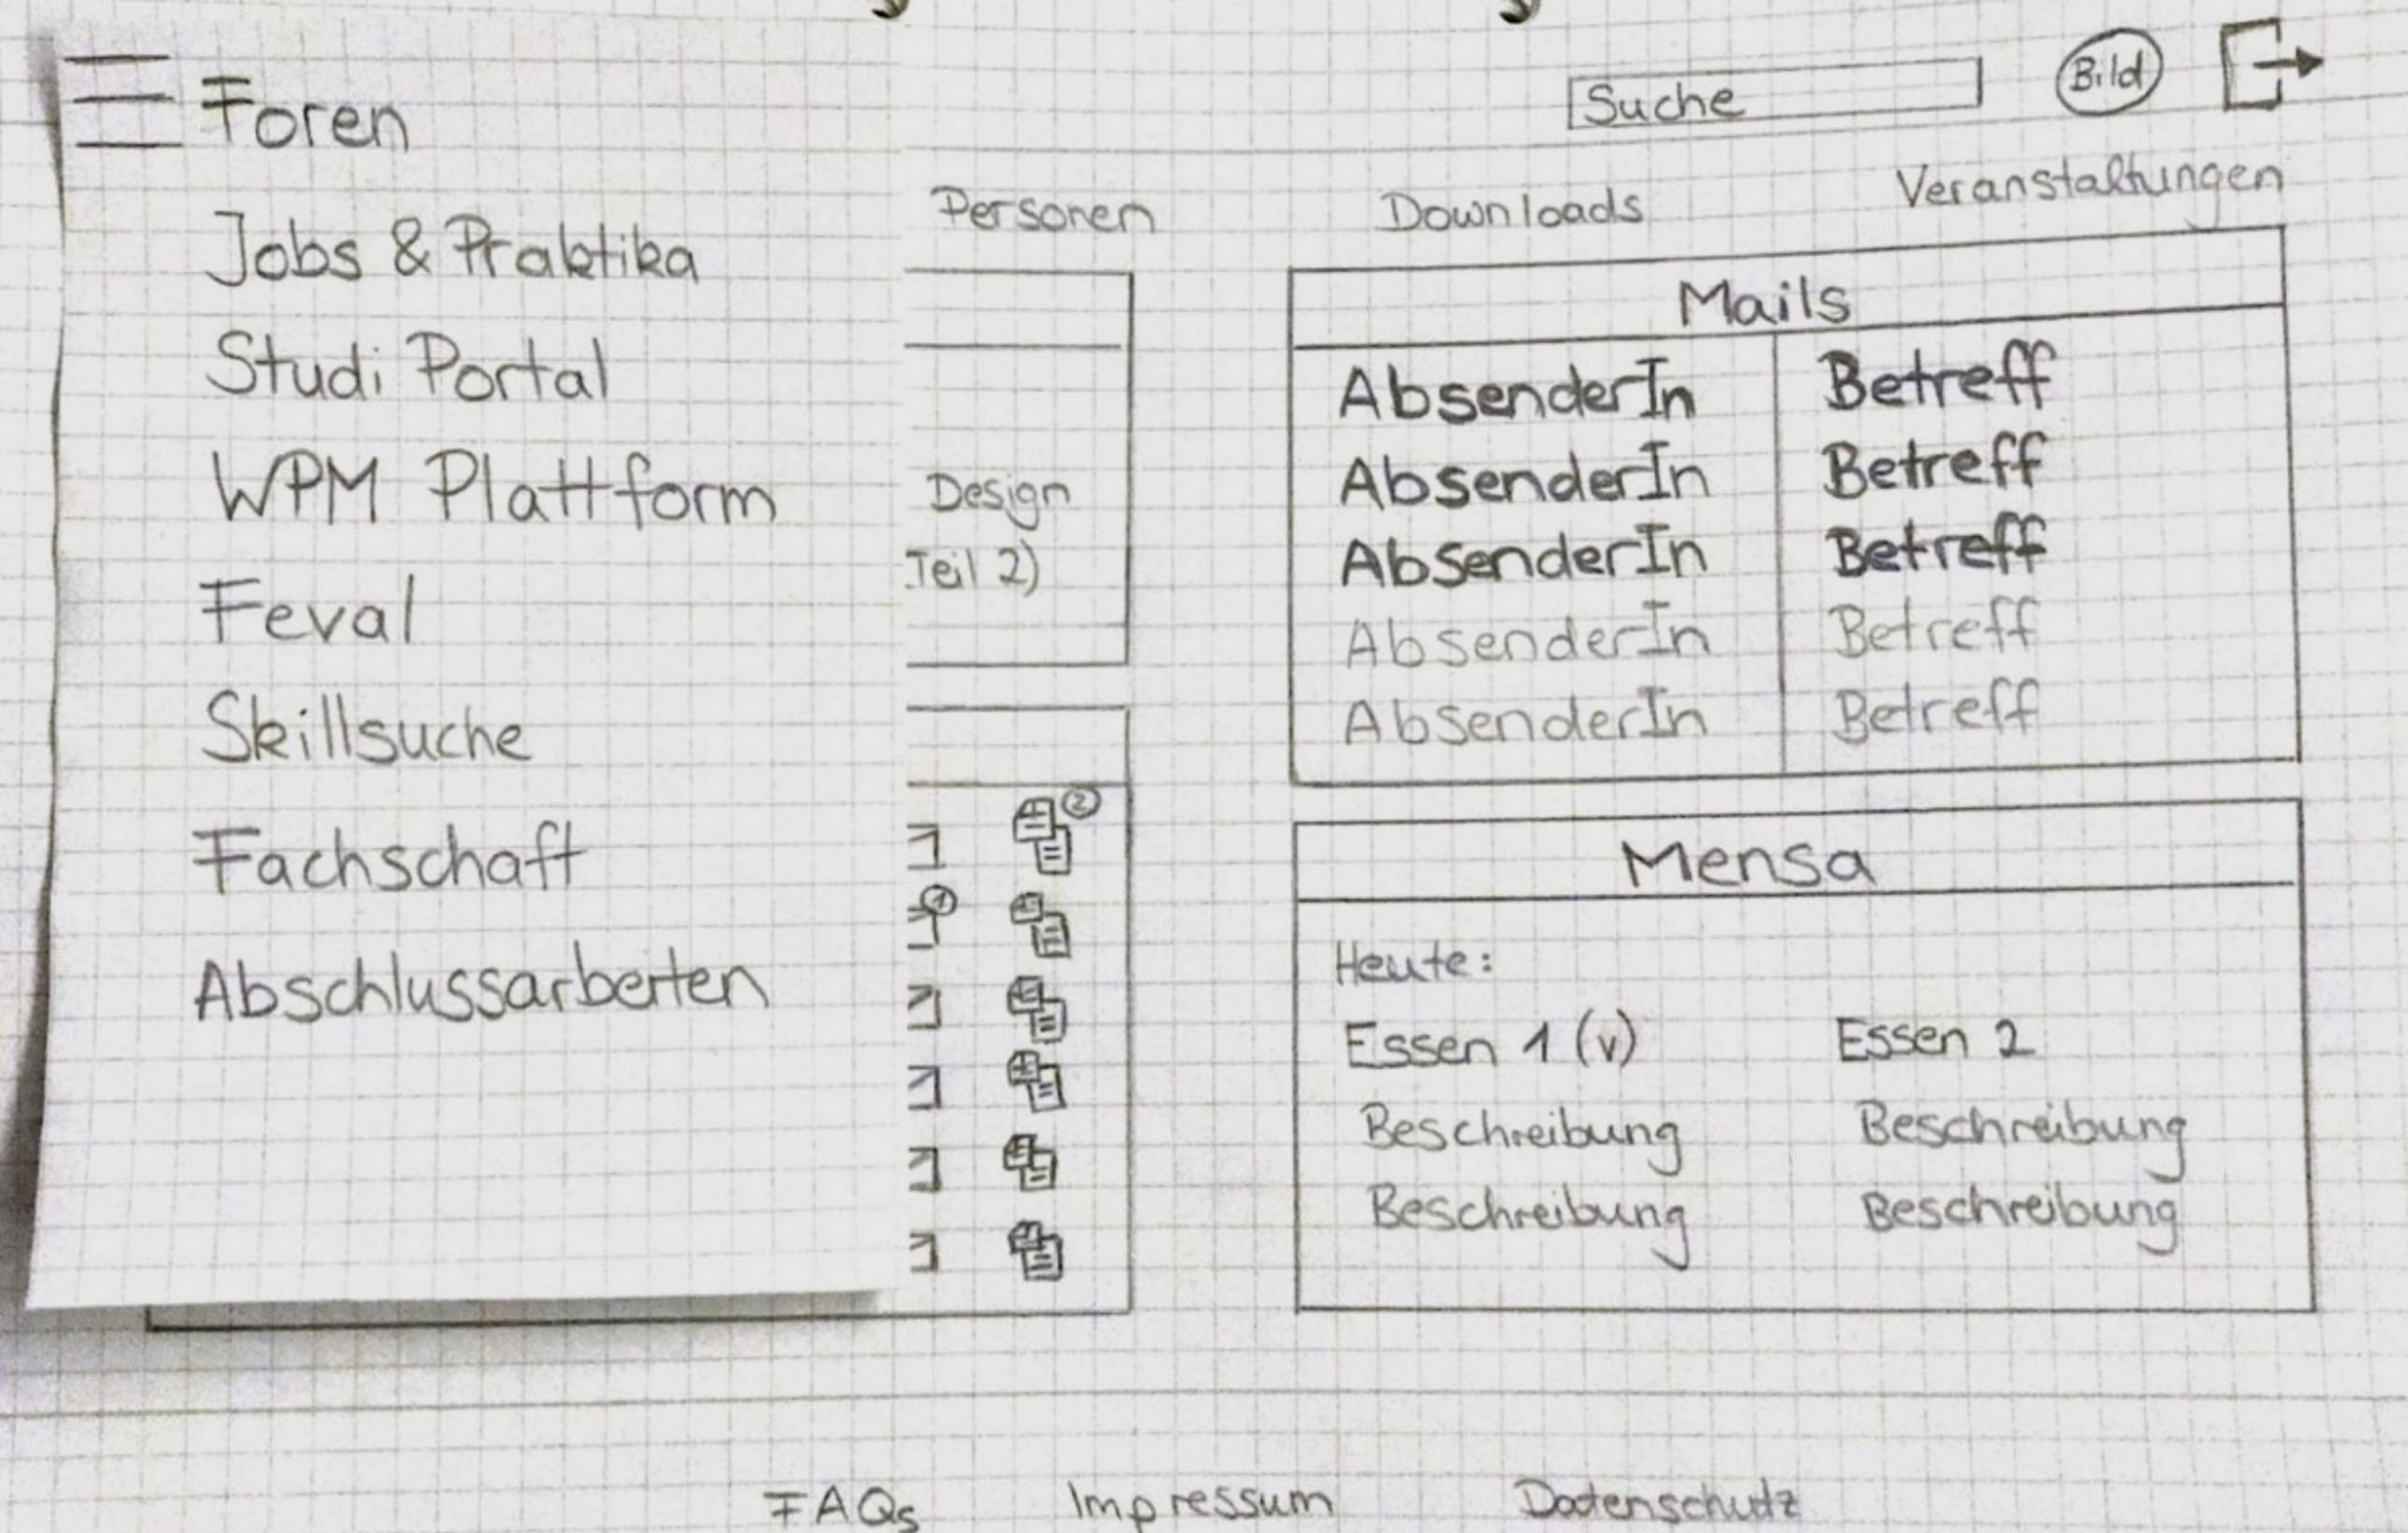 Foren
Jobs & Praktika
Studi Portal
WPM Plattform
Feval
Skillsuche
Fachschaft
Abschlussarbeiten
Suche
Bild
Personen
Downloads
Veranstaltungen
Design
Teil 2)
2
1
Mails
AbsenderIn Betreff
AbsenderIn Betreff
AbsenderIn Betreff
AbsenderIn Betreff
AbsenderIn Betreff
Mensa
Heute:
Essen 1 (v) Essen 2
Beschreibung Beschreibung
Beschreibung Beschreibung
FAQs Impressum Datenschutz